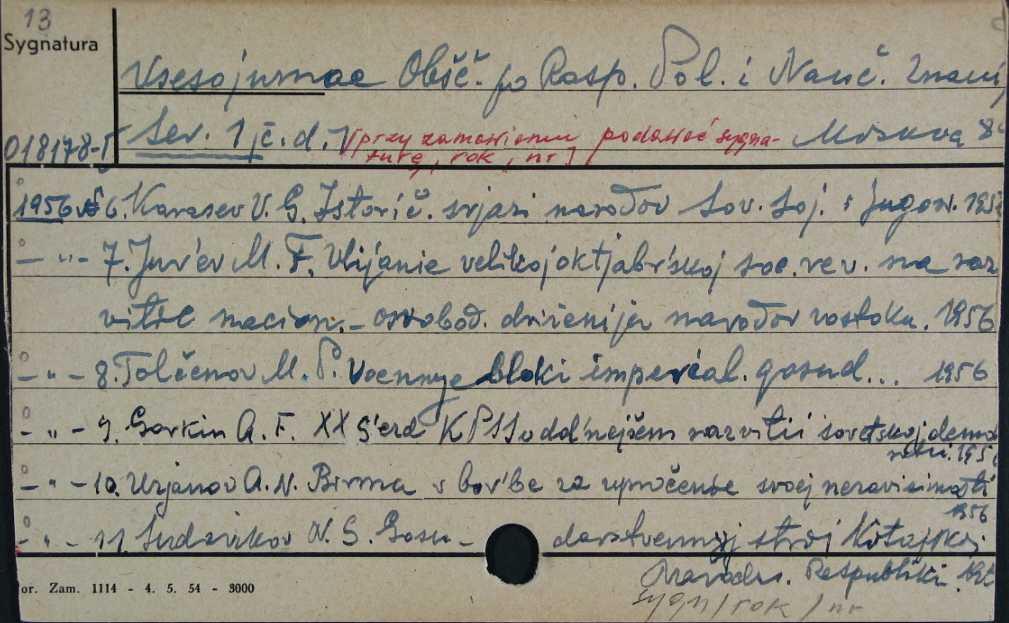 13
Sygnatura
Vsesojuznae Obšč. po Rasp. Pol. i Nauč. Znanij
018178-T Ser. 1 /č. d./ [przy zamawianiu podawać sygna- Moskva 8°
turę, rok, nr]
1956 № 6. Karasev V. G. Istorič. svjazi narodov Sov. Soj. i Jugosl. 195
- " - 7. Jur'ev M. F. Vlijanie velikoj oktjabr'skoj soc. rev. na raz
vitie nacion. - osvobod. dviženija narodov vostoka. 1956
- " - 8. Tolčenov M. P. Voennye bloki imperial. gosud... 1956
- " - 9. Gorkin A. F. XX S'ezd KPSS o dal'nejšem razvitii sovetskoj demo
ratii. 195
- " - 10. Urjanov A. N. Birma v bor'be za upročenie svoej nezavisimosti
1956
- " - 11. Sudarikov N. G. Gosu- darstvennyj stroj Kitajskoj
Narodn. Respubliki. 195
or. Zam. 1114 - 4. 5. 54 - 3000
sygn / rok / nr